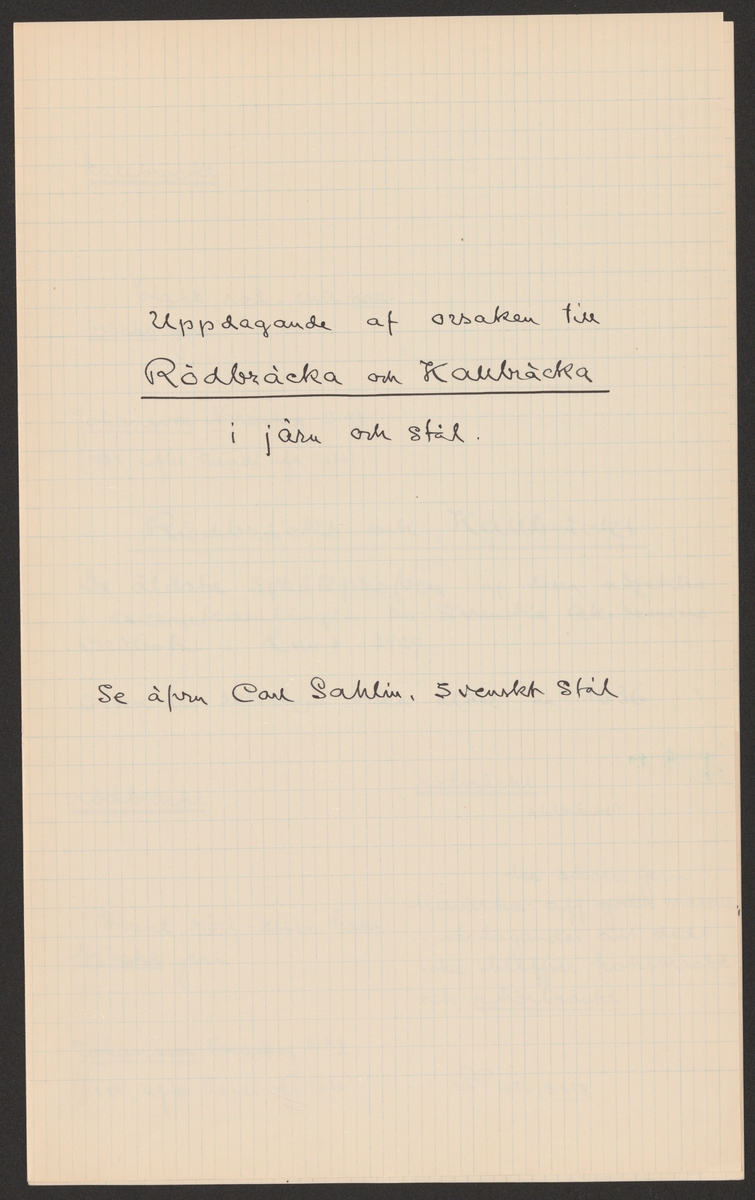 Uppdagande af orsaken till
Rödbräcka och Kallbräcka
i järn och stål.
Se äfven Carl Sahlin. Svenskt Stål